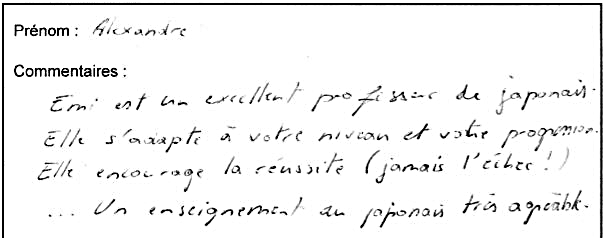 Prénom : Alexandre
Commentaires :
Emi est un excellent professeur de japonais.
Elle s'adapte à votre niveau et votre progression.
Elle encourage la réussite (jamais l'échec !)
... Un enseignement du japonais très agréable.